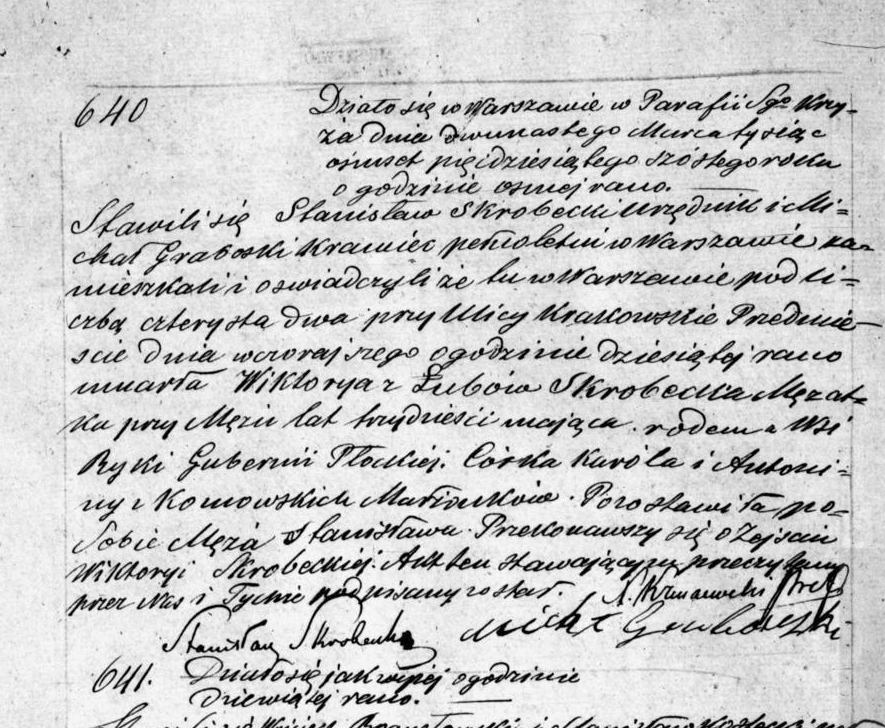 640
Działo się w Warszawie w Parafii Sgo Krzy-
ża dnia dwunastego Marca tysiąc
ośmset pięćdziesiątego szóstego roku
o godzinie osmej rano.
Stawili się Stanisław Skrobecki urzędnik i Mi=
chał Graboski Krawiec pełnoletni w Warszawie za=
mieszkali i oswiadczyli że tu w Warszawie pod li=
czbą czterysta dwa przy Ulicy Krakowskie Przedmie-
scie dnia wczorajszego o godzinie dziesiątej rano
umarła Wiktorya z Łubów Skrobecka Mężat=
ka przy Mężu lat trzydzieści mająca. rodem z Wsi
Ryki Gubernii Płockiej. Córka Karóla i Antoni=
ny z Komowskich Małżonków. Pozostawiła po-
sobie Męża Stanisława. Przekonawszy się o Zejściu
Wiktoryi Skrobeckiej. Akt ten stawającym przeczytany
przez Nas i Tychże podpisany został.
Stanisław Skrobecki Michał
641. Działo się jak wyżej o godzinie
dziewiątej rano.